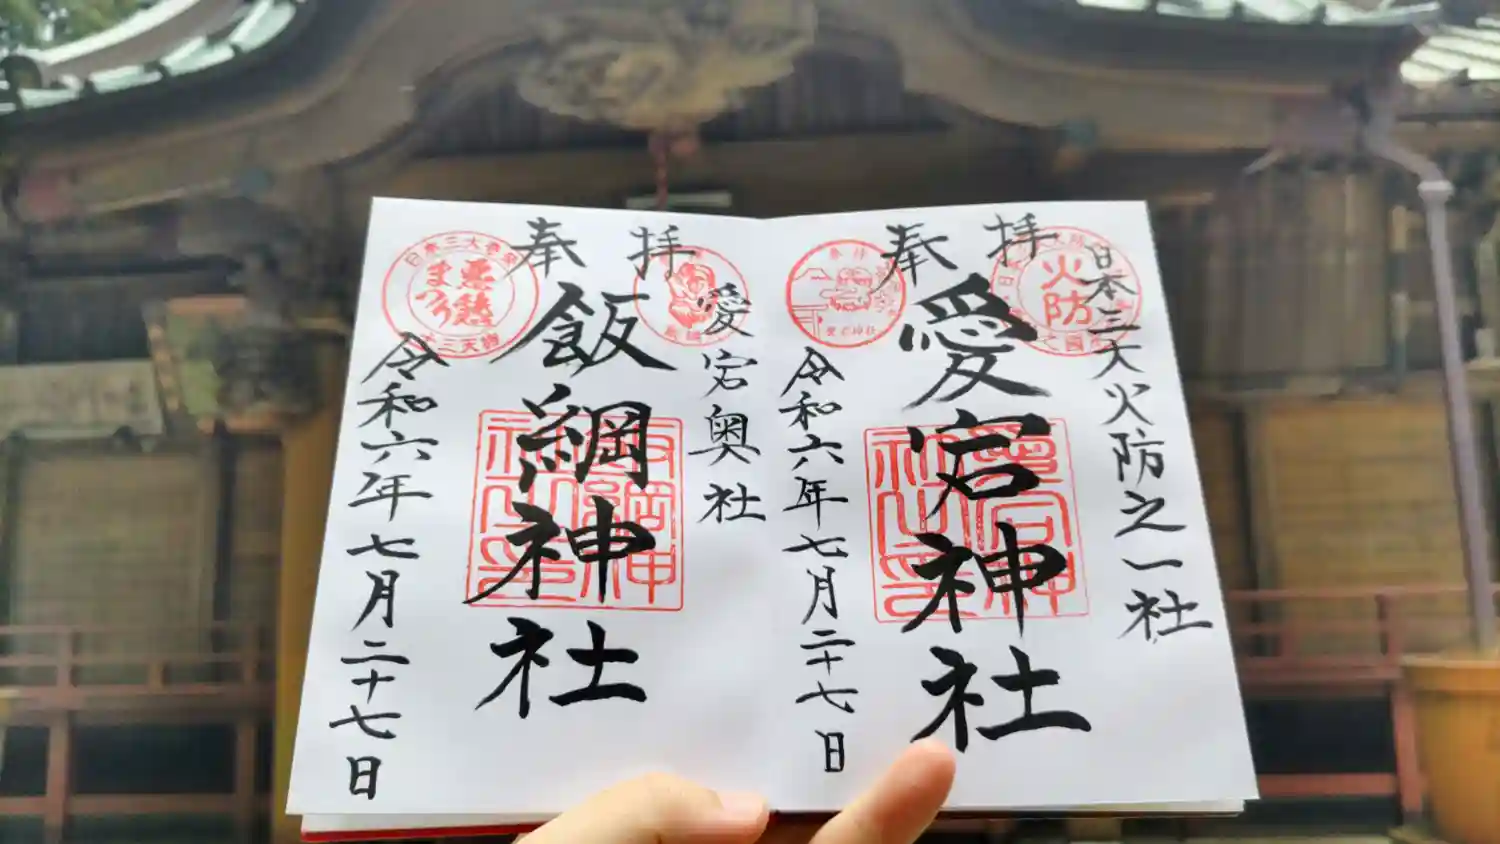 奉拝
日本三大火防之一社
愛宕神社
令和六年七月二十七日
火防
奉拝
愛宕神社
奉拝
愛宕奥社
飯綱神社
令和六年七月二十七日
悪態
まつり